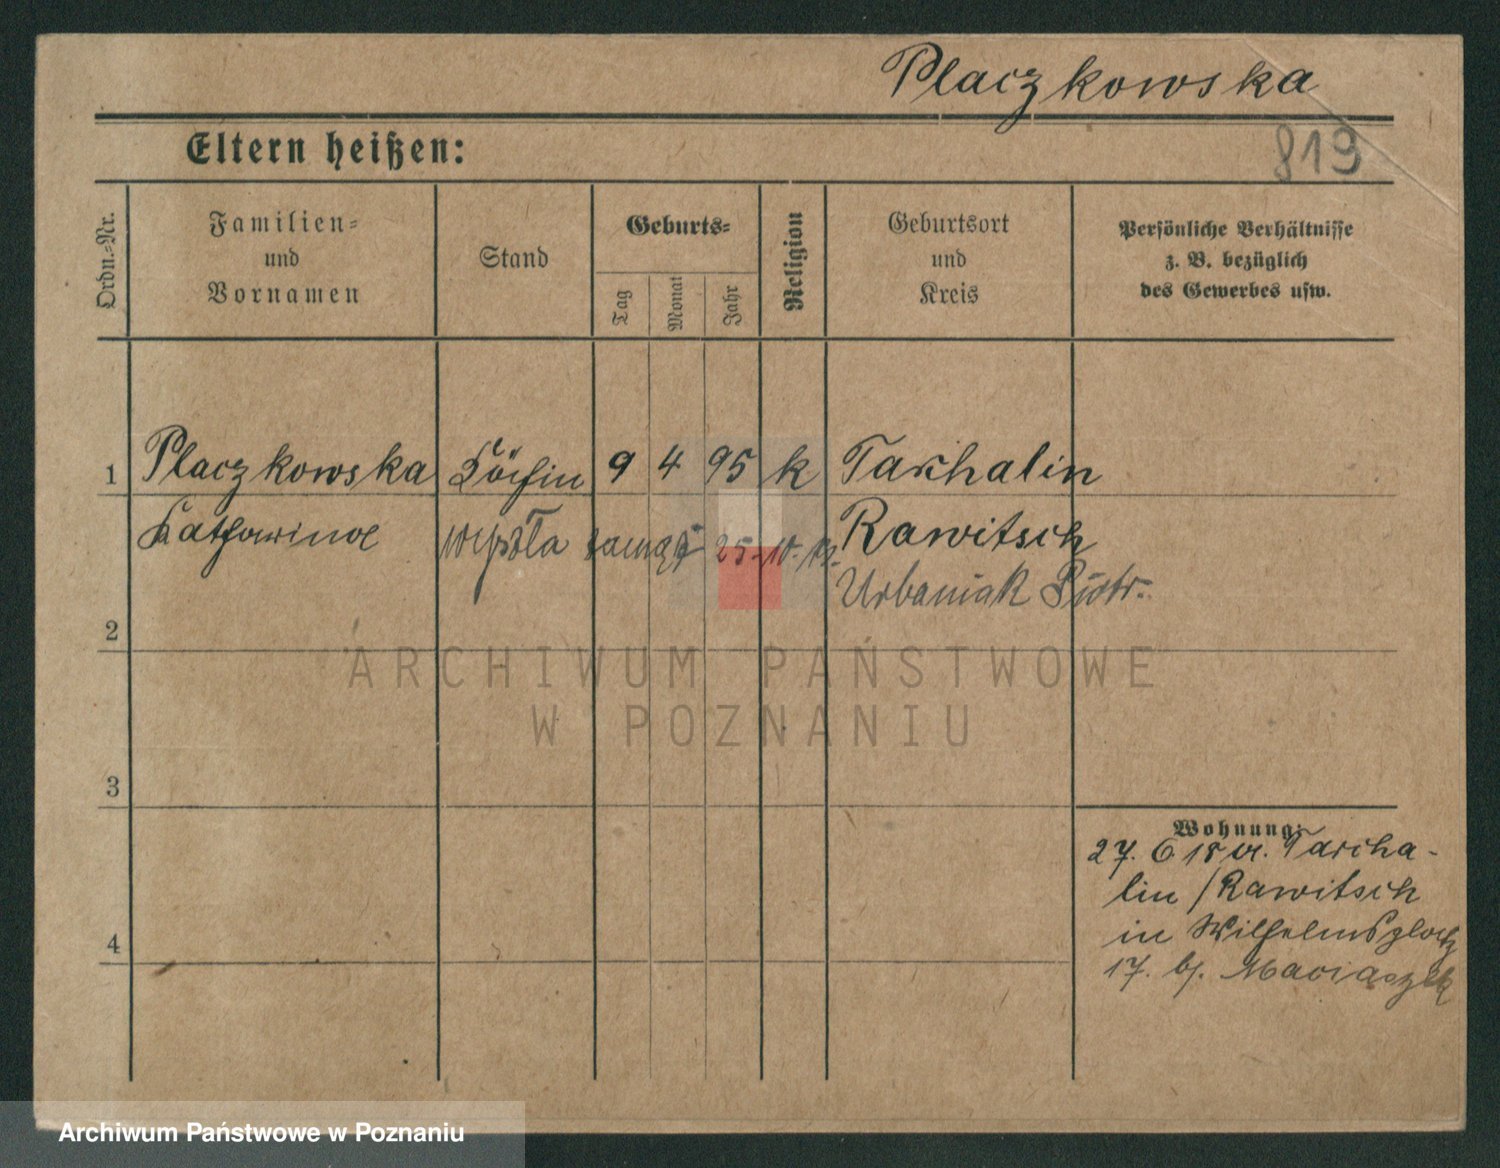 Placzkowska
819
Eltern heißen:
Ordn.=Nr.
Familien=
und
Vornamen
Stand
Geburts=
Tag
Monat
Jahr
Religion
Geburtsort
und
Kreis
Persönliche Verhältnisse
z. B. bezüglich
des Gewerbes usw.
1 Placzkowska Köchin 9 4 95 k Tarchalin
Katharina weszła zamąż 25.10. Rawitsch
Urbaniak Piotr.
2
3
4
Wohnung:
27. 6 18 Tarcha-
lin / Rawitsch
in Wilhelmsplatz
17. b/. Maciaszek
ARCHIWUM PAŃSTWOWE
W POZNANIU
Archiwum Państwowe w Poznaniu